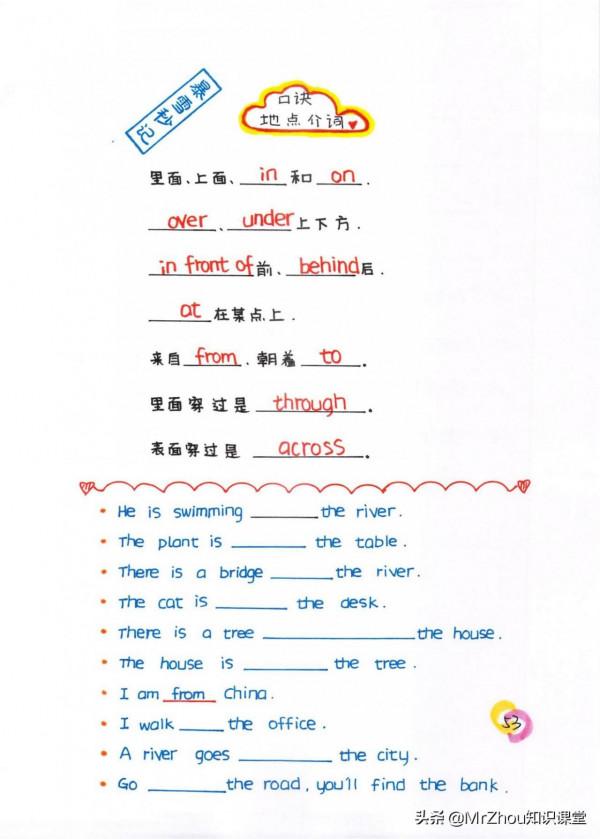 暴雪秒记
口诀
地点介词
里面、上面、in 和 on.
over、under 上下方.
in front of 前、behind 后.
at 在某点上.
来自 from、朝着 to。
里面穿过是 through。
表面穿过是 across。
• He is swimming ______ the river.
• The plant is ______ the table.
• There is a bridge ______ the river.
• The cat is ______ the desk.
• There is a tree ______ the house.
• The house is ______ the tree.
• I am from China.
• I walk ______ the office.
53
• A river goes ______ the city.
• Go ______ the road, you'll find the bank.
头条 @MrZhou知识课堂